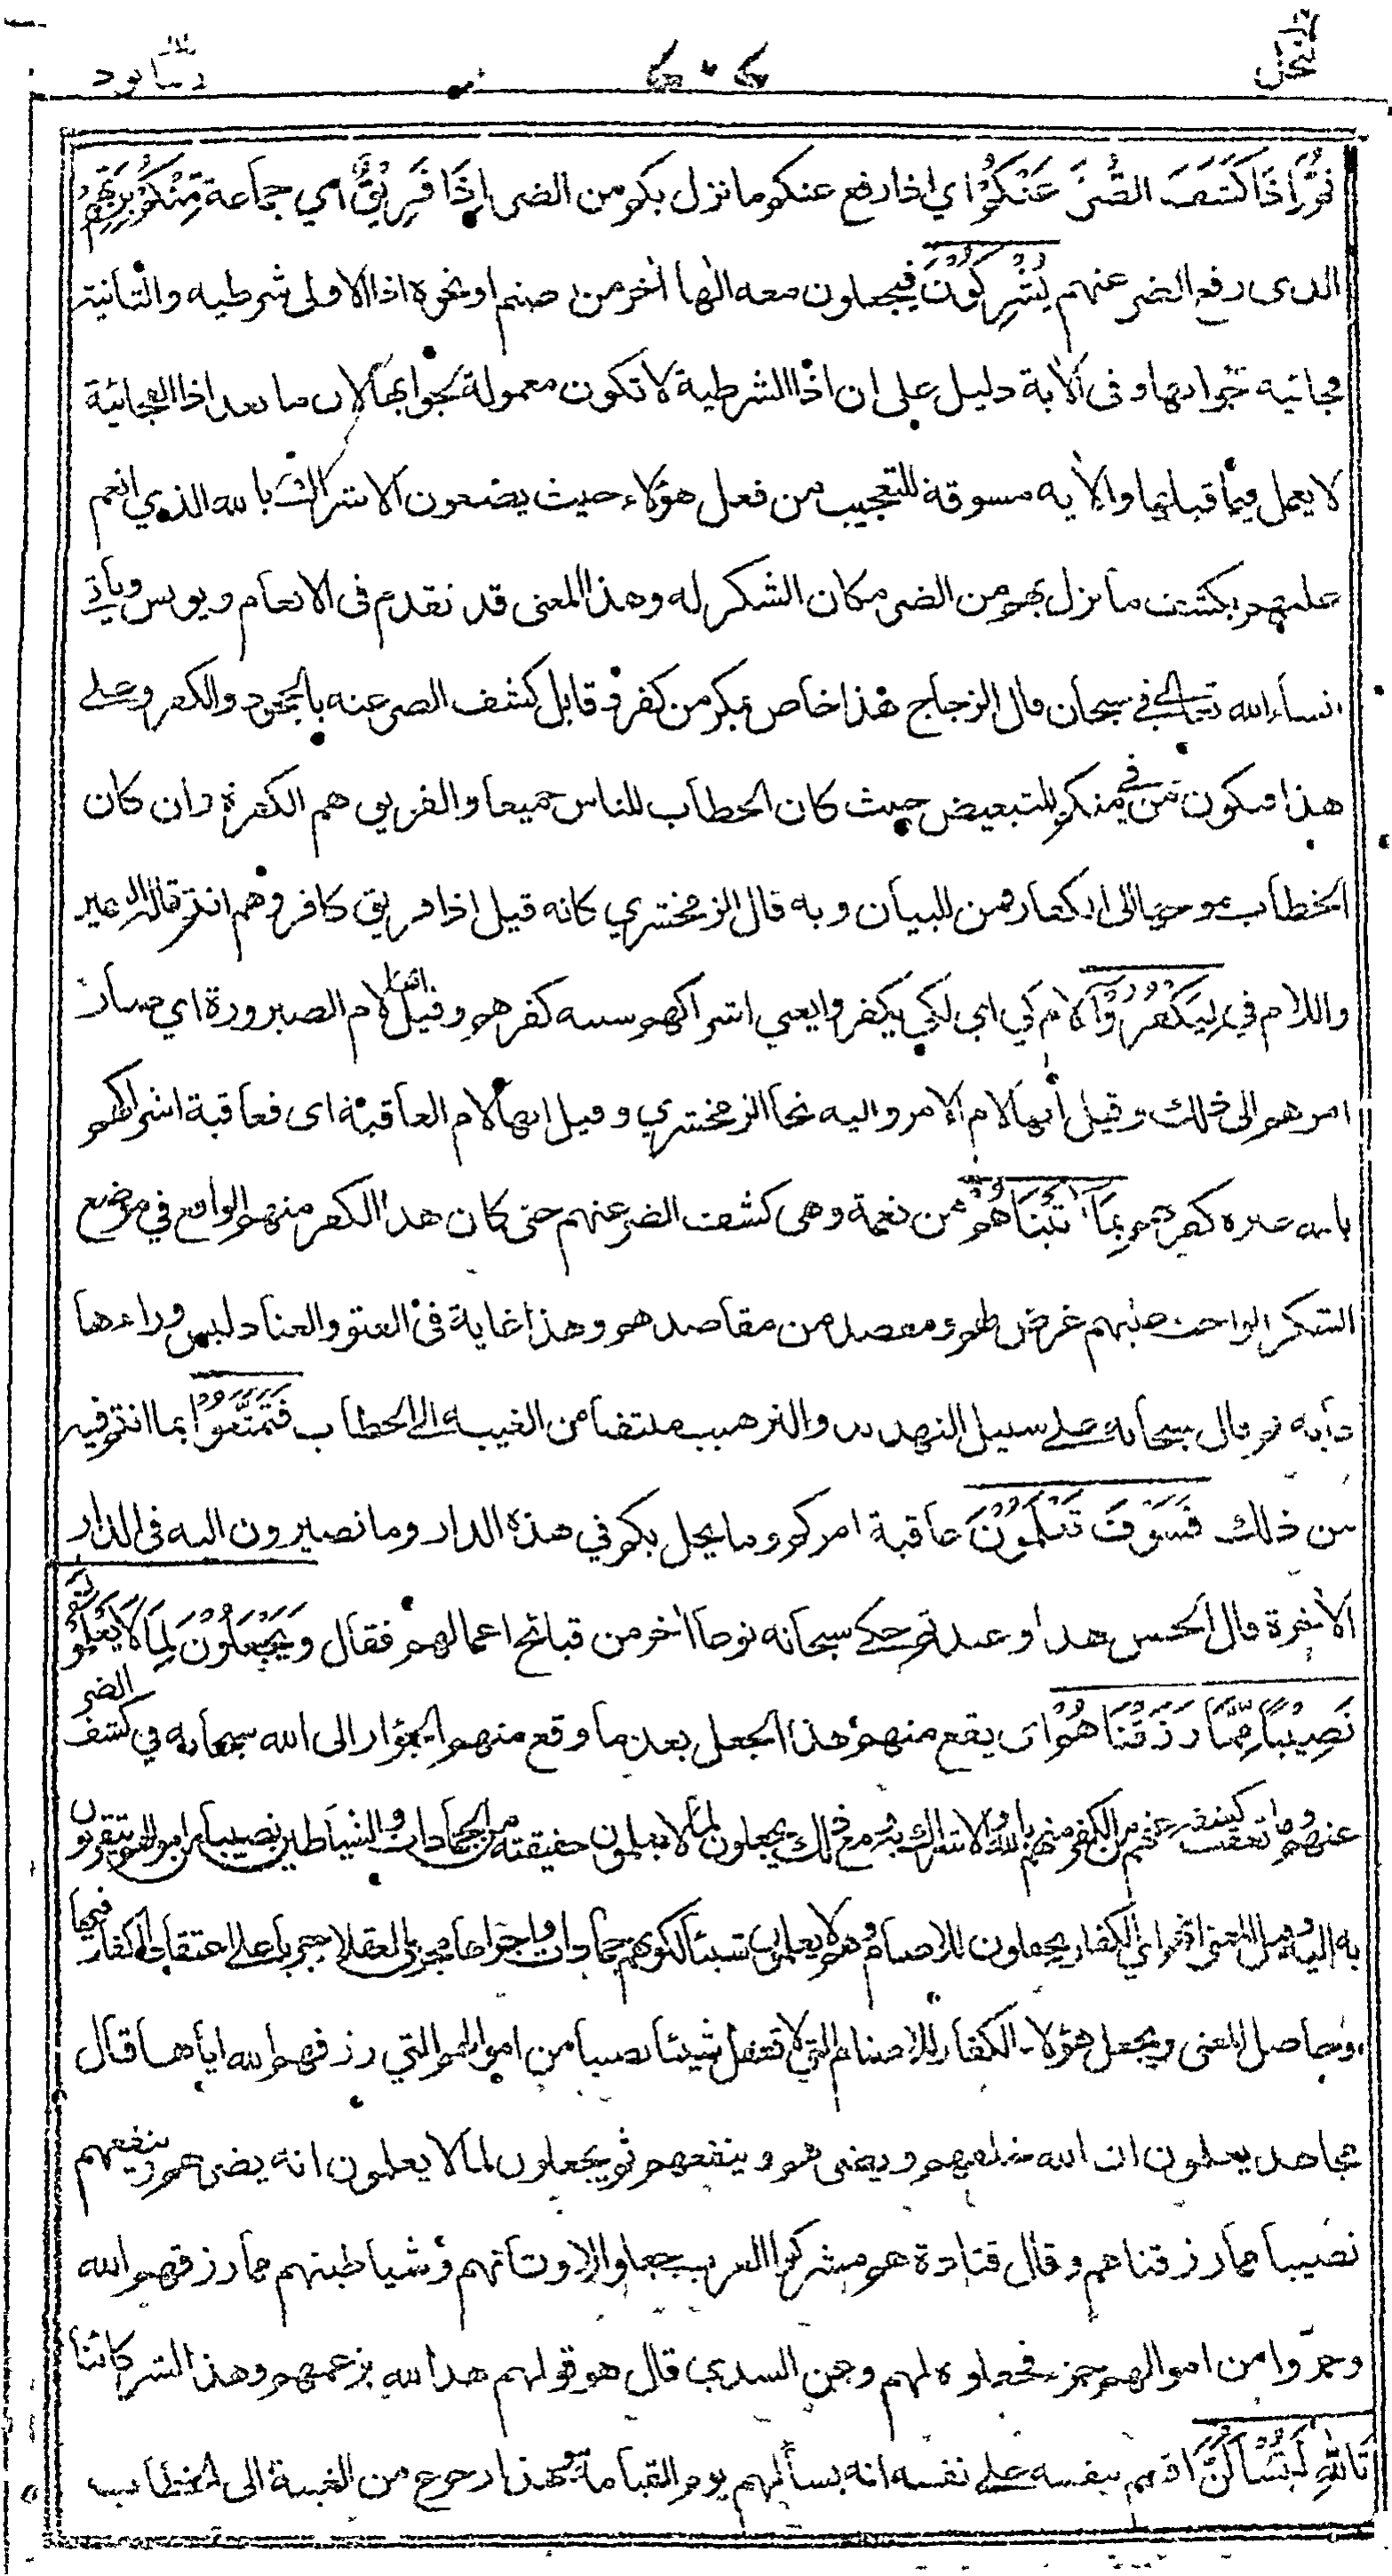 النحل
ربما ١٤
ثُمَّ إِذَا كَشَفَ الضُّرَّ عَنْكُمْ اي اذا رفع عنكم ما نزل بكم من الضر إِذَا فَرِيْقٌ اي جماعة مِّنْكُمْ بِرَبِّهِمْ
الذى رفع الضر عنهم يُشْرِكُوْنَ فيجعلون معه الٰها اٰخر من صنم او نحوه اذا الاولى شرطيه والثانية
فجائيه جوابها وفى الاٰية دليل على ان اذا الشرطية لا تكون معمولة لجوابها لان ما بعد اذا الفجائية
لا يعمل فيما قبلها والاٰيه مسوقة للتعجيب من فعل هؤلاء حيث يضعون الاشراك بالله الذي انعم
عليهم بكشف ما نزل بهم من الضر مكان الشكر له وهذا المعنى قد تقدم فى الانعام ويونس ويأتي
انشاء الله تعالى في سبحان قال الزجاج هذا خاص بمن كفر وقابل كشف الضر عنه بالجحود والكفر وعلى
هذا فيكون من في منكم للتبعيض حيث كان الخطاب للناس جميعا والفريق هم الكفرة وان كان
الخطاب موجها الى الكفار فمن للبيان وبه قال الزمخشري كانه قيل اذا فريق كافر وهم انتم قاله
واللام في لِيَكْفُرُوْا لام كي اي لكي يكفروا يعني اشراكهم سببه كفرهم وقيل انها لام الصيرورة اي صار
امرهم الى ذلك وقيل انها لام الامر واليه نحا الزمخشري وقيل انها لام العاقبة اى فعاقبة اشراكهم
بالله غيره كفرهم بِمَا اٰتَيْنَاهُمْ من نعمة وهى كشف الضر عنهم حتى كان هذا الكفر منهم الواقع في موضع
الشكر الواجب عليهم غرض لهم ومقصد من مقاصدهم وهذا غاية فى العتو والعناد ليس وراءها
ثم قال سبحانه على سبيل التهديد والترهيب ملتفتا من الغيبة الى الخطاب فَتَمَتَّعُوْا بما انتم فيه
من ذلك فَسَوْفَ تَعْلَمُوْنَ عاقبة امركم وما يحل بكم في هذه الدار وما تصيرون اليه فى الدار
الاٰخرة قال الحسن هذا وعيد ثم حكى سبحانه نوعا اٰخر من قبائح اعمالهم فقال وَيَجْعَلُوْنَ لِمَا لَا يَعْلَمُوْنَ
نَصِيْبًا مِّمَّا رَزَقْنَاهُمْ اى يقع منهم هذا الجعل بعد ما وقع منهم الجؤار الى الله سبحانه في كشف الضر
عنهم وما تعقب كشفه عنهم من الكفر منهم بالله والاشراك به ومع ذلك يجعلون لما لا يعلمون حقيقته من الجمادات والشياطين نصيبا من اموالهم يتقربون
به اليه وقيل المعنى انهم اي الكفار يجعلون للاصنام وهم لا يعلمون شيئا لكونهم جمادات واجراها مجرى العقلاء جريا على اعتقاد الكفار فيها
وحاصل المعنى ويجعل هؤلاء الكفار للاصنام التي لا تعقل شيئا نصيبا من اموالهم التي رزقهم الله اياها قال
مجاهد يعلمون ان الله خلقهم ويضرهم وينفعهم ثم يجعلون لما لا يعلمون انه يضرهم وينفعهم
نصيبا مما رزقناهم وقال قتادة هم مشركوا العرب جعلوا لاوثانهم وشياطينهم مما رزقهم الله
وجزّوا من اموالهم جزء فجعلوه لهم وعن السدي قال هو قولهم هذا لله بزعمهم وهذا لشركائنا
تَاللهِ لَتُسْأَلُنَّ اقسم بنفسه على نفسه انه يسألهم يوم القيامة وهذا رجوع من الغيبة الى الخطاب